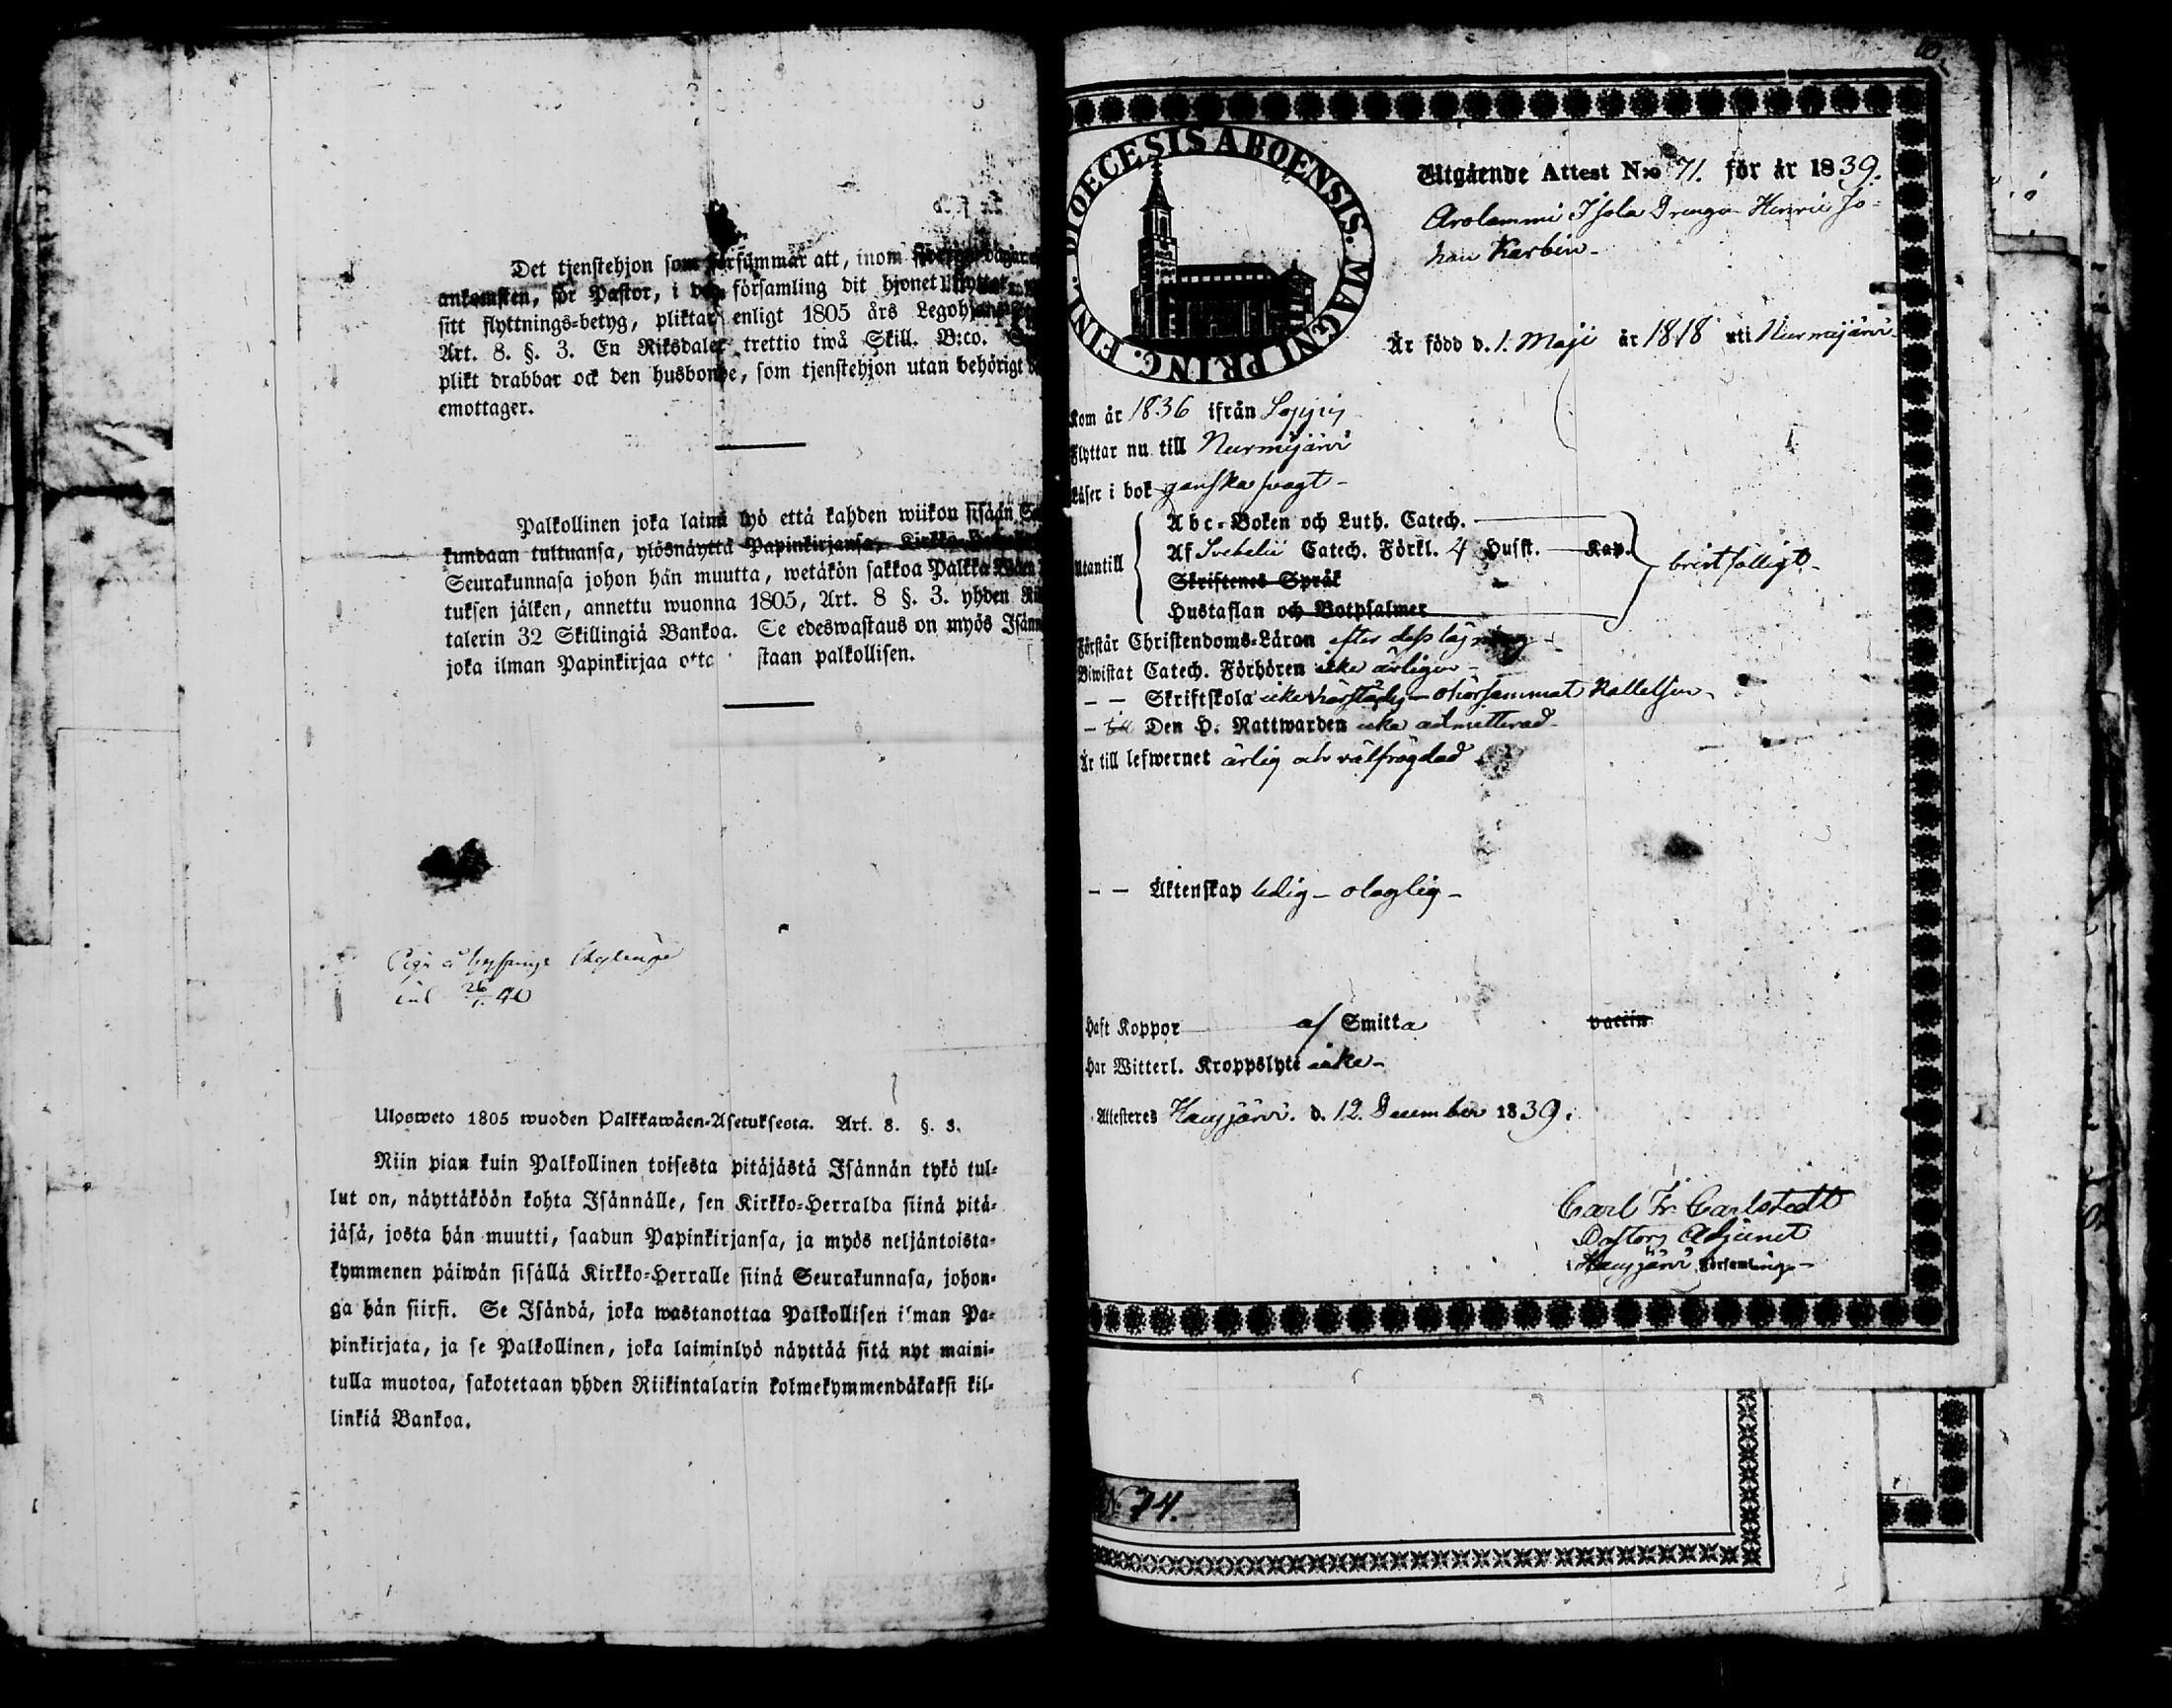 Det tjenstehjon som försummar att, inom
ankomsten, för Pastor, i den församling dit hjonet
sitt flyttnings-betyg, pliktar enligt 1805 års Legohjons
Art. 8. §. 3. En Riksdaler trettio twå Skill. B:co.
plikt drabbar ock den husbonde, som tjenstehjon utan behörigt
emottager.
Palkollinen joka laimi lyö että kahden wiikon sisään
kundaan tultuansa, ylösnäyttä Papinkirjansa, Kirkko
Seurakunnasa johon hän muutta, wetäkön sakkoa Palkka Wäen
tuksen jälken, annettu wuonna 1805, Art. 8 §. 3. yhden
talerin 32 Skillingiä Bankoa. Se edeswastaus on myös Isänn
joka ilman Papinkirjaa otta staan palkollisen.
26/1. 40
Ulosweto 1805 wuoden Palkkawäen-Asetuksesta. Art. 8. §. 3.
Niin pian kuin Palkollinen toisesta pitäjästä Isännän tykö tul-
lut on, näyttäköön kohta Isännälle, sen Kirkko-Herralda siinä pitä-
jäsä, josta hän muutti, saadun Papinkirjansa, ja myös neljäntoista-
kymmenen päiwän sisällä Kirkko-Herralle siinä Seurakunnasa, johon-
ga hän siirsi. Se Isändä, joka wastanottaa Palkollisen ilman Pa-
pinkirjata, ja se Palkollinen, joka laiminlyö näyttää sitä nyt maini-
tulla muotoa, sakotetaan yhden Riikintalarin kolmekymmendäkaksi kil-
linkiä Bankoa.
DIOECESIS ABOENSIS. MAGNI PRINC. FINL.
Utgående Attest N:o 71. för år 1839.
Arolammi Isola Drengen Henric Jo-
han Karbin-
Är född d. 1. Maji år 1818 uti Nurmijärvi-
Kom år 1836 ifrån Loppis
Flyttar nu till Nurmijärvi
Läser i bok ganska svagt-
Utantill
Abc-Boken och Luth. Catech.
Af Svebelii Catech. Förkl. 4 Husst. Kap.
bristfälligt-
Skriftenes Språk
Hustaflan och Botpsalmer
Förstår Christendoms-Läran efter dess läsning-
Biwistat Catech. Förhören icke årligen-
- - Skriftskola icke härstädes- ohörsammat Kallelsen-
- till Den H. Nattwarden icke admitterad-
Är till lefwernet ärlig och välfrägdad
- - Äktenskap ledig- olaglig-
Haft Koppor af Smitta vaccin
Har Witterl. Kroppslyte icke-
Attesteres Hausjärvi. d. 12. December 1839.
Carl Fr. Carlstedt
Pastors Adjunct
Hausjärvi Församling-
N: 74.